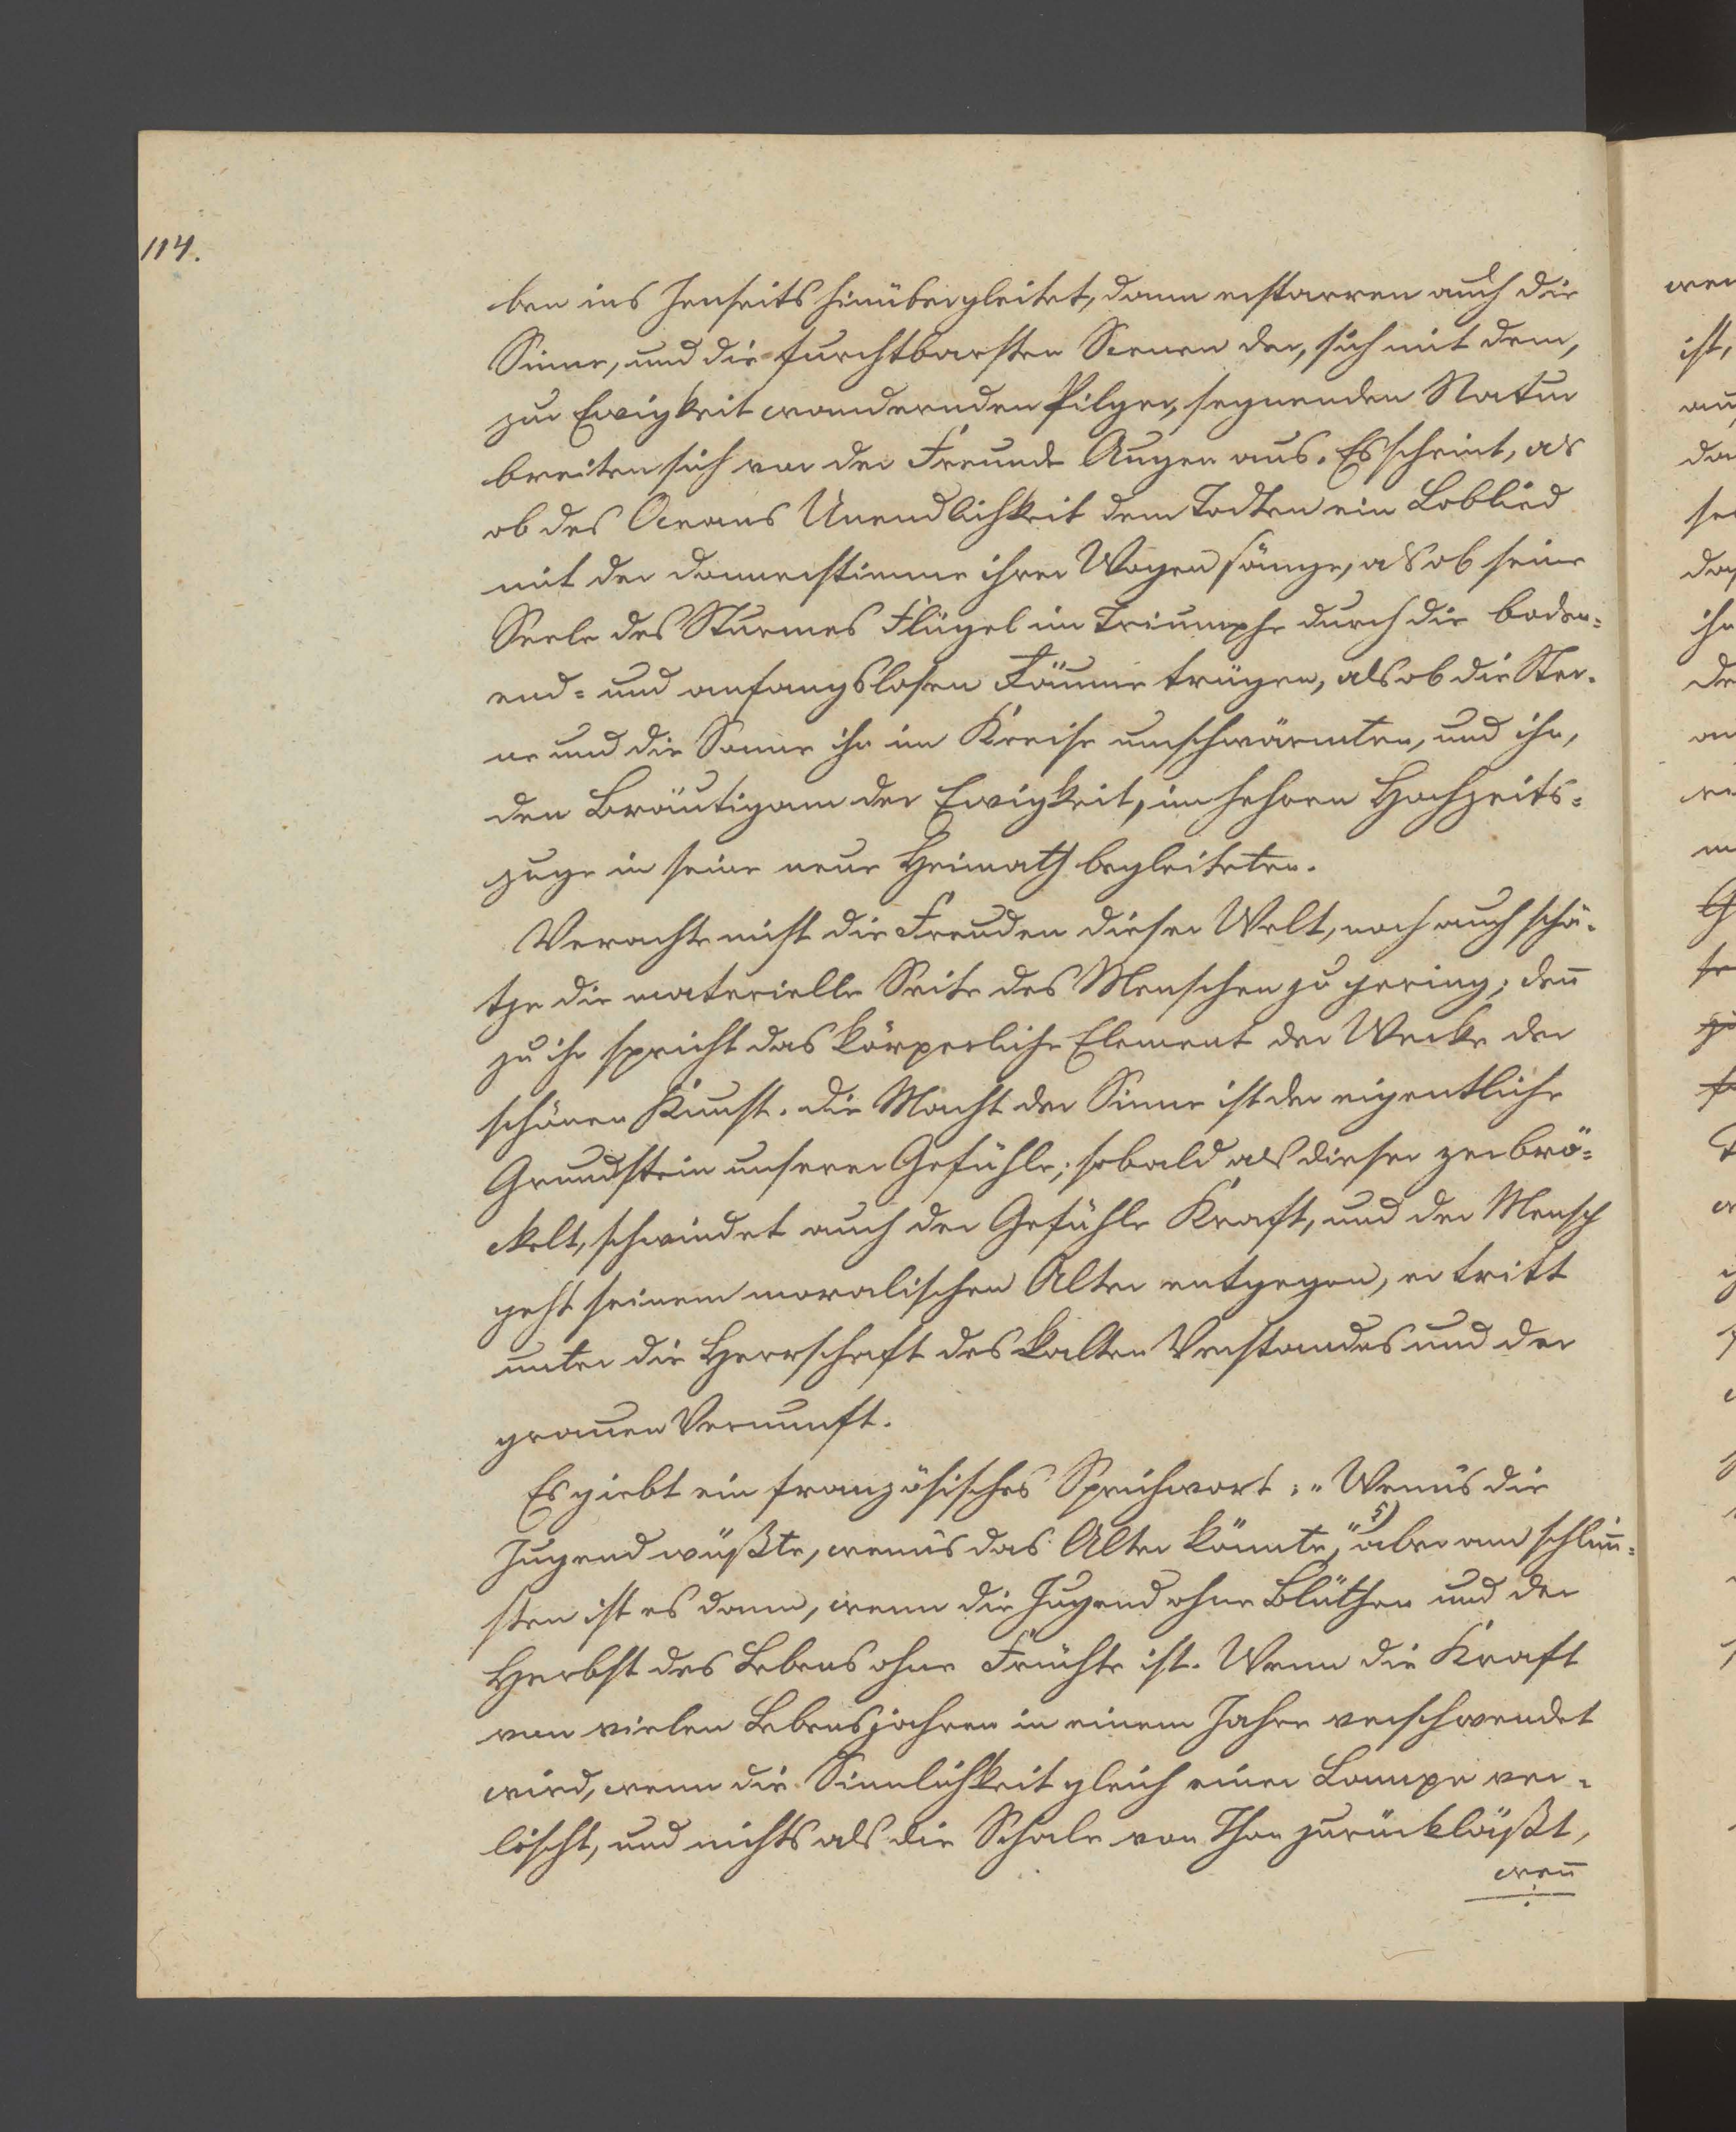 114.
ben ins Jenseits hinübergleitet, dann erstarren auch die
Sinne, und die furchtbarsten Scenen der, sich mit dem,
zur Ewigkeit wandernden Pilger, segnenden Natur
breiten sich vor der Freunde Augen aus. Es scheint, als
ob des Oceans Unendlichkeit dem Todten ein Loblied
mit der Donnerstimme ihrer Wogen sänge, als ob seine
Seele des Sturmes Flügel im Triumphe durch die boden-
end- und anfangslosen Räume trügen, als ob die Ster-
ne und die Sonne ihn im Kreise umschwärmten, und ihn,
den Bräutigam der Ewigkeit, im hehren Hochzeits-
zuge in seine neue Heimath begleiteten.
Verachte nicht die Freuden dieser Welt, noch auch schä-
tze die materielle Seite des Menschen zu gering; deñ
zu ihr spricht das körperliche Element der Werke der
schönen Kunst. Die Macht der Sinne ist der eigentliche
Grundstein unserer Gefühle; sobald als dieser zerbrö-
ckelt, schwindet auch der Gefühle Kraft, und der Mensch
geht seinem moralischen Alter entgegen, er tritt
unter die Herrschaft des kalten Verstandes und der
grauen Vernunft.
Es giebt ein französisches Sprichwort: „Wenn's die
Jugend wüßte, wenn's das Alter könnte," §) aber am schlim̄-
sten ist es dann, wenn die Jugend ohne Blüthen und der
Herbst des Lebens ohne Früchte ist. Wenn die Kraft
von vielen Lebensjahren in einem Jahre verschwendet
wird, wenn die Sinnlichkeit gleich einer Lampe ver-
löscht, und nichts als die Schale von Thon zurückläßt,
weñ